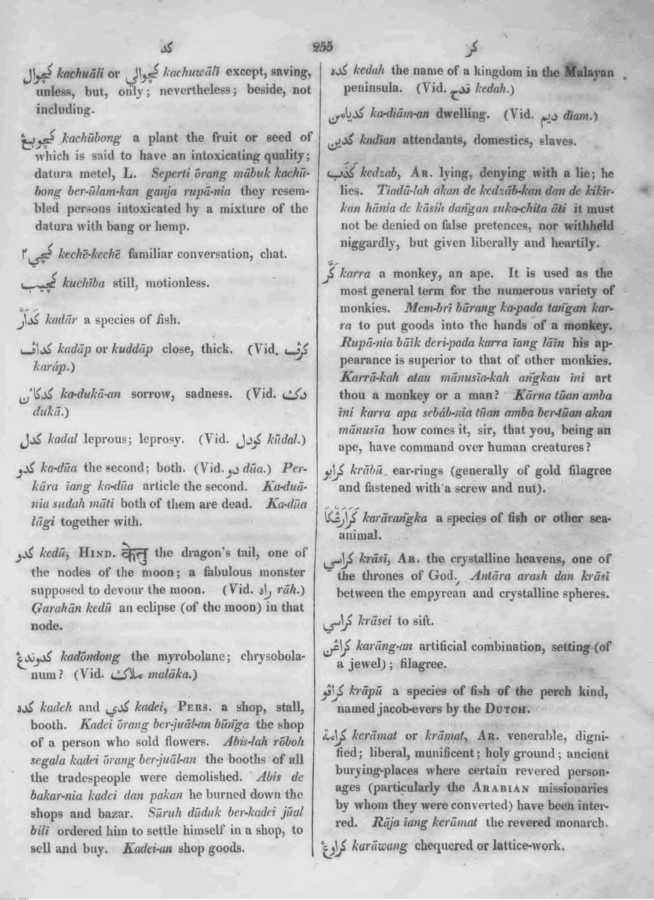 كد
255
كر
كچوال kachuāli or كچوالي kachuwāli except, saving,
unless, but, only; nevertheless; beside, not
including.
كچوبڠ kachūbong a plant the fruit or seed of
which is said to have an intoxicating quality;
datura metel, L. Seperti ōrang mābuk kachū-
bong ber-ūlam-kan ganja rupā-nia they resem-
bled persons intoxicated by a mixture of the
datura with bang or hemp.
كچي٢ kechē-kechē familiar conversation, chat.
كچيب kuchība still, motionless.
كدار kadār a species of fish.
كداف kadāp or kuddāp close, thick. (Vid. كرف
karāp.)
كدكاٴن ka-dukā-an sorrow, sadness. (Vid. دك
dukā.)
كدل kadal leprous; leprosy. (Vid. كودل kūdal.)
كدو ka-dūa the second; both. (Vid. دو dūa.) Per-
kāra īang ka-dūa article the second. Ka-duā-
nia sudah māti both of them are dead. Ka-dūa
lāgi together with.
كدو kedū, HIND. केतु the dragon's tail, one of
the nodes of the moon; a fabulous monster
supposed to devour the moon. (Vid. راه rāh.)
Garahān kedū an eclipse (of the moon) in that
node.
كدوندڠ kadōndong the myrobolane; chrysobola-
num? (Vid. ملاك malāka.)
كده kadeh and كدي kadei, PERS. a shop, stall,
booth. Kadei ōrang ber-juāl-an būn̄ga the shop
of a person who sold flowers. Abis-lah rōboh
segala kadei ōrang ber-juāl-an the booths of all
the tradespeople were demolished. Abis de
bakar-nia kadei dan pakan he burned down the
shops and bazar. Sūruh dūduk ber-kadei jūal
bili ordered him to settle himself in a shop, to
sell and buy. Kadei-an shop goods.
كده kedah the name of a kingdom in the Malayan
peninsula. (Vid. قدح kedah.)
كديامن ka-diām-an dwelling. (Vid. ديم diam.)
كدين kadīan attendants, domestics, slaves.
كذب kedzab, AR. lying, denying with a lie; he
lies. Tiadā-lah akan de kedzāb-kan dan de kikīr-
kan hānia de kāsih dan̄gan suka-chita āti it must
not be denied on false pretences, nor withheld
niggardly, but given liberally and heartily.
كر karra a monkey, an ape. It is used as the
most general term for the numerous variety of
monkies. Mem-brī bārang ka-pada tan̄gan kar-
ra to put goods into the hands of a monkey.
Rupā-nia bāik deri-pada karra īang lāin his ap-
pearance is superior to that of other monkies.
Karrā-kah atau mānusīa-kah an̄gkau īni art
thou a monkey or a man? Kārna tūan amba
īni karra apa sebāb-nia tūan amba ber-tūan akan
mānusīa how comes it, sir, that you, being an
ape, have command over human creatures?
كرابو krābū ear-rings (generally of gold filagree
and fastened with a screw and nut).
كراڠك karāran̄gka a species of fish or other sea-
animal.
كراسي krāsī, AR. the crystalline heavens, one of
the thrones of God. Antāra arash dan krāsī
between the empyrean and crystalline spheres.
كراسي krāsei to sift.
كراڠن karāng-an artificial combination, setting (of
a jewel); filagree.
كرافو krāpū a species of fish of the perch kind,
named jacob-evers by the DUTCH.
كرامة kerāmat or krāmat, AR. venerable, digni-
fied; liberal, munificent; holy ground; ancient
burying-places where certain revered person-
ages (particularly the ARABIAN missionaries
by whom they were converted) have been inter-
red. Rāja īang kerāmat the revered monarch.
كراوڠ karāwang chequered or lattice-work.